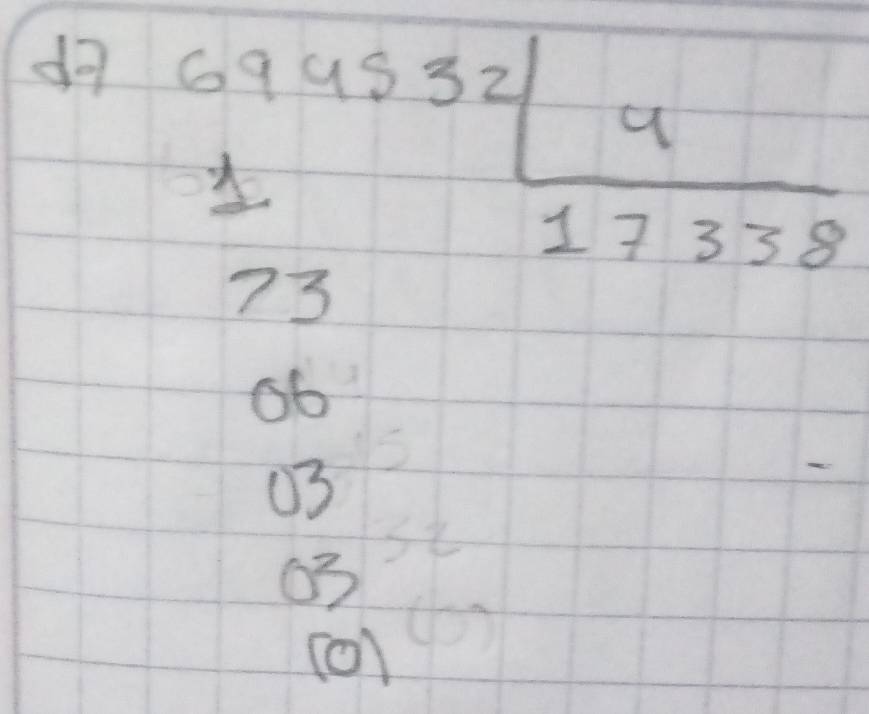 d) 694532 4
1 17338
73
06
03
03
(0)